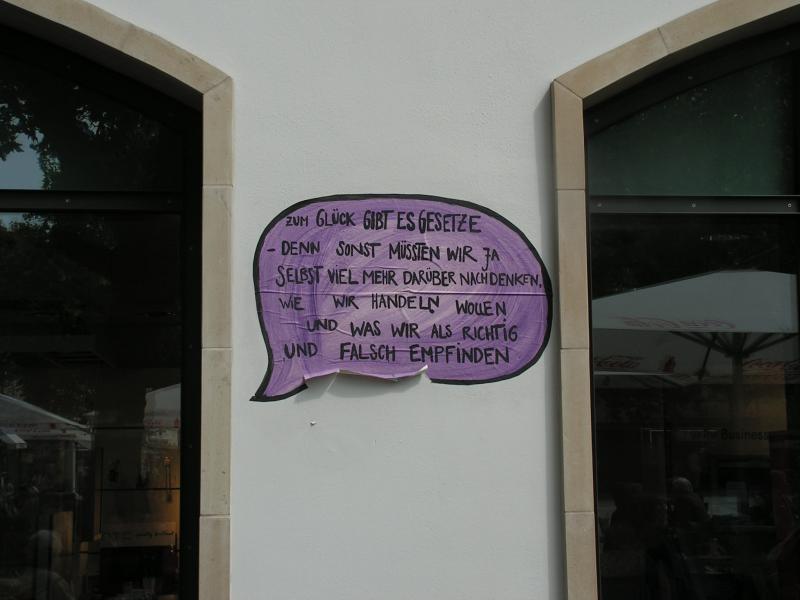 ZUM GLÜCK GIBT ES GESETZE
- DENN SONST MÜSSTEN WIR JA
SELBST VIEL MEHR DARÜBER NACHDENKEN,
WIE WIR HANDELN WOLLEN
UND WAS WIR ALS RICHTIG
UND FALSCH EMPFINDEN
Business